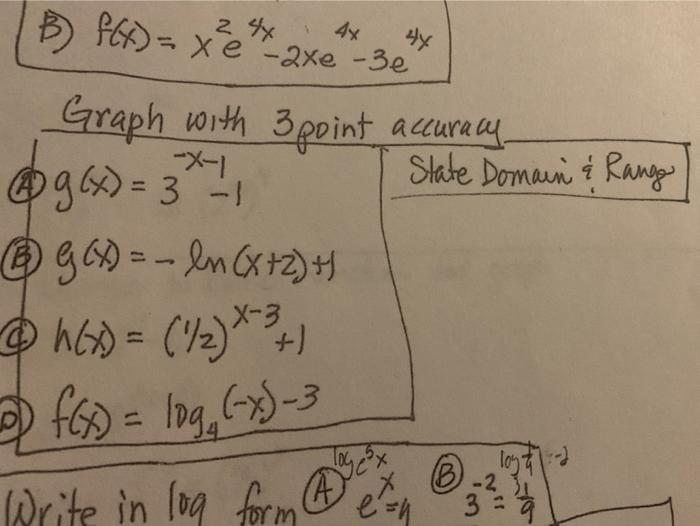 B) f(x) = x²e^4x - 2xe^4x - 3e^4x
Graph with 3 point accuracy
State Domain & Range
A g(x) = 3^-x-1 - 1
B g(x) = - ln(x+2)+1
C h(x) = (1/2)^x-3 + 1
D f(x) = log₄(-x) - 3
Write in log form A e^x = 4 B 3^-2 = 1/9